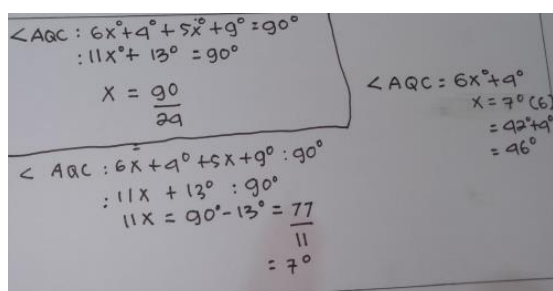 <AQC : 6x°+4°+5x°+9° = 90°
: 11x°+ 13° = 90°
x = 90/24
< AQC : 6x+4°+5x+9° : 90°
: 11x + 13° : 90°
11x = 90°-13° = 77/11
= 7°
<AQC = 6x°+4°
x = 7°(6)
= 42°+4°
= 46°